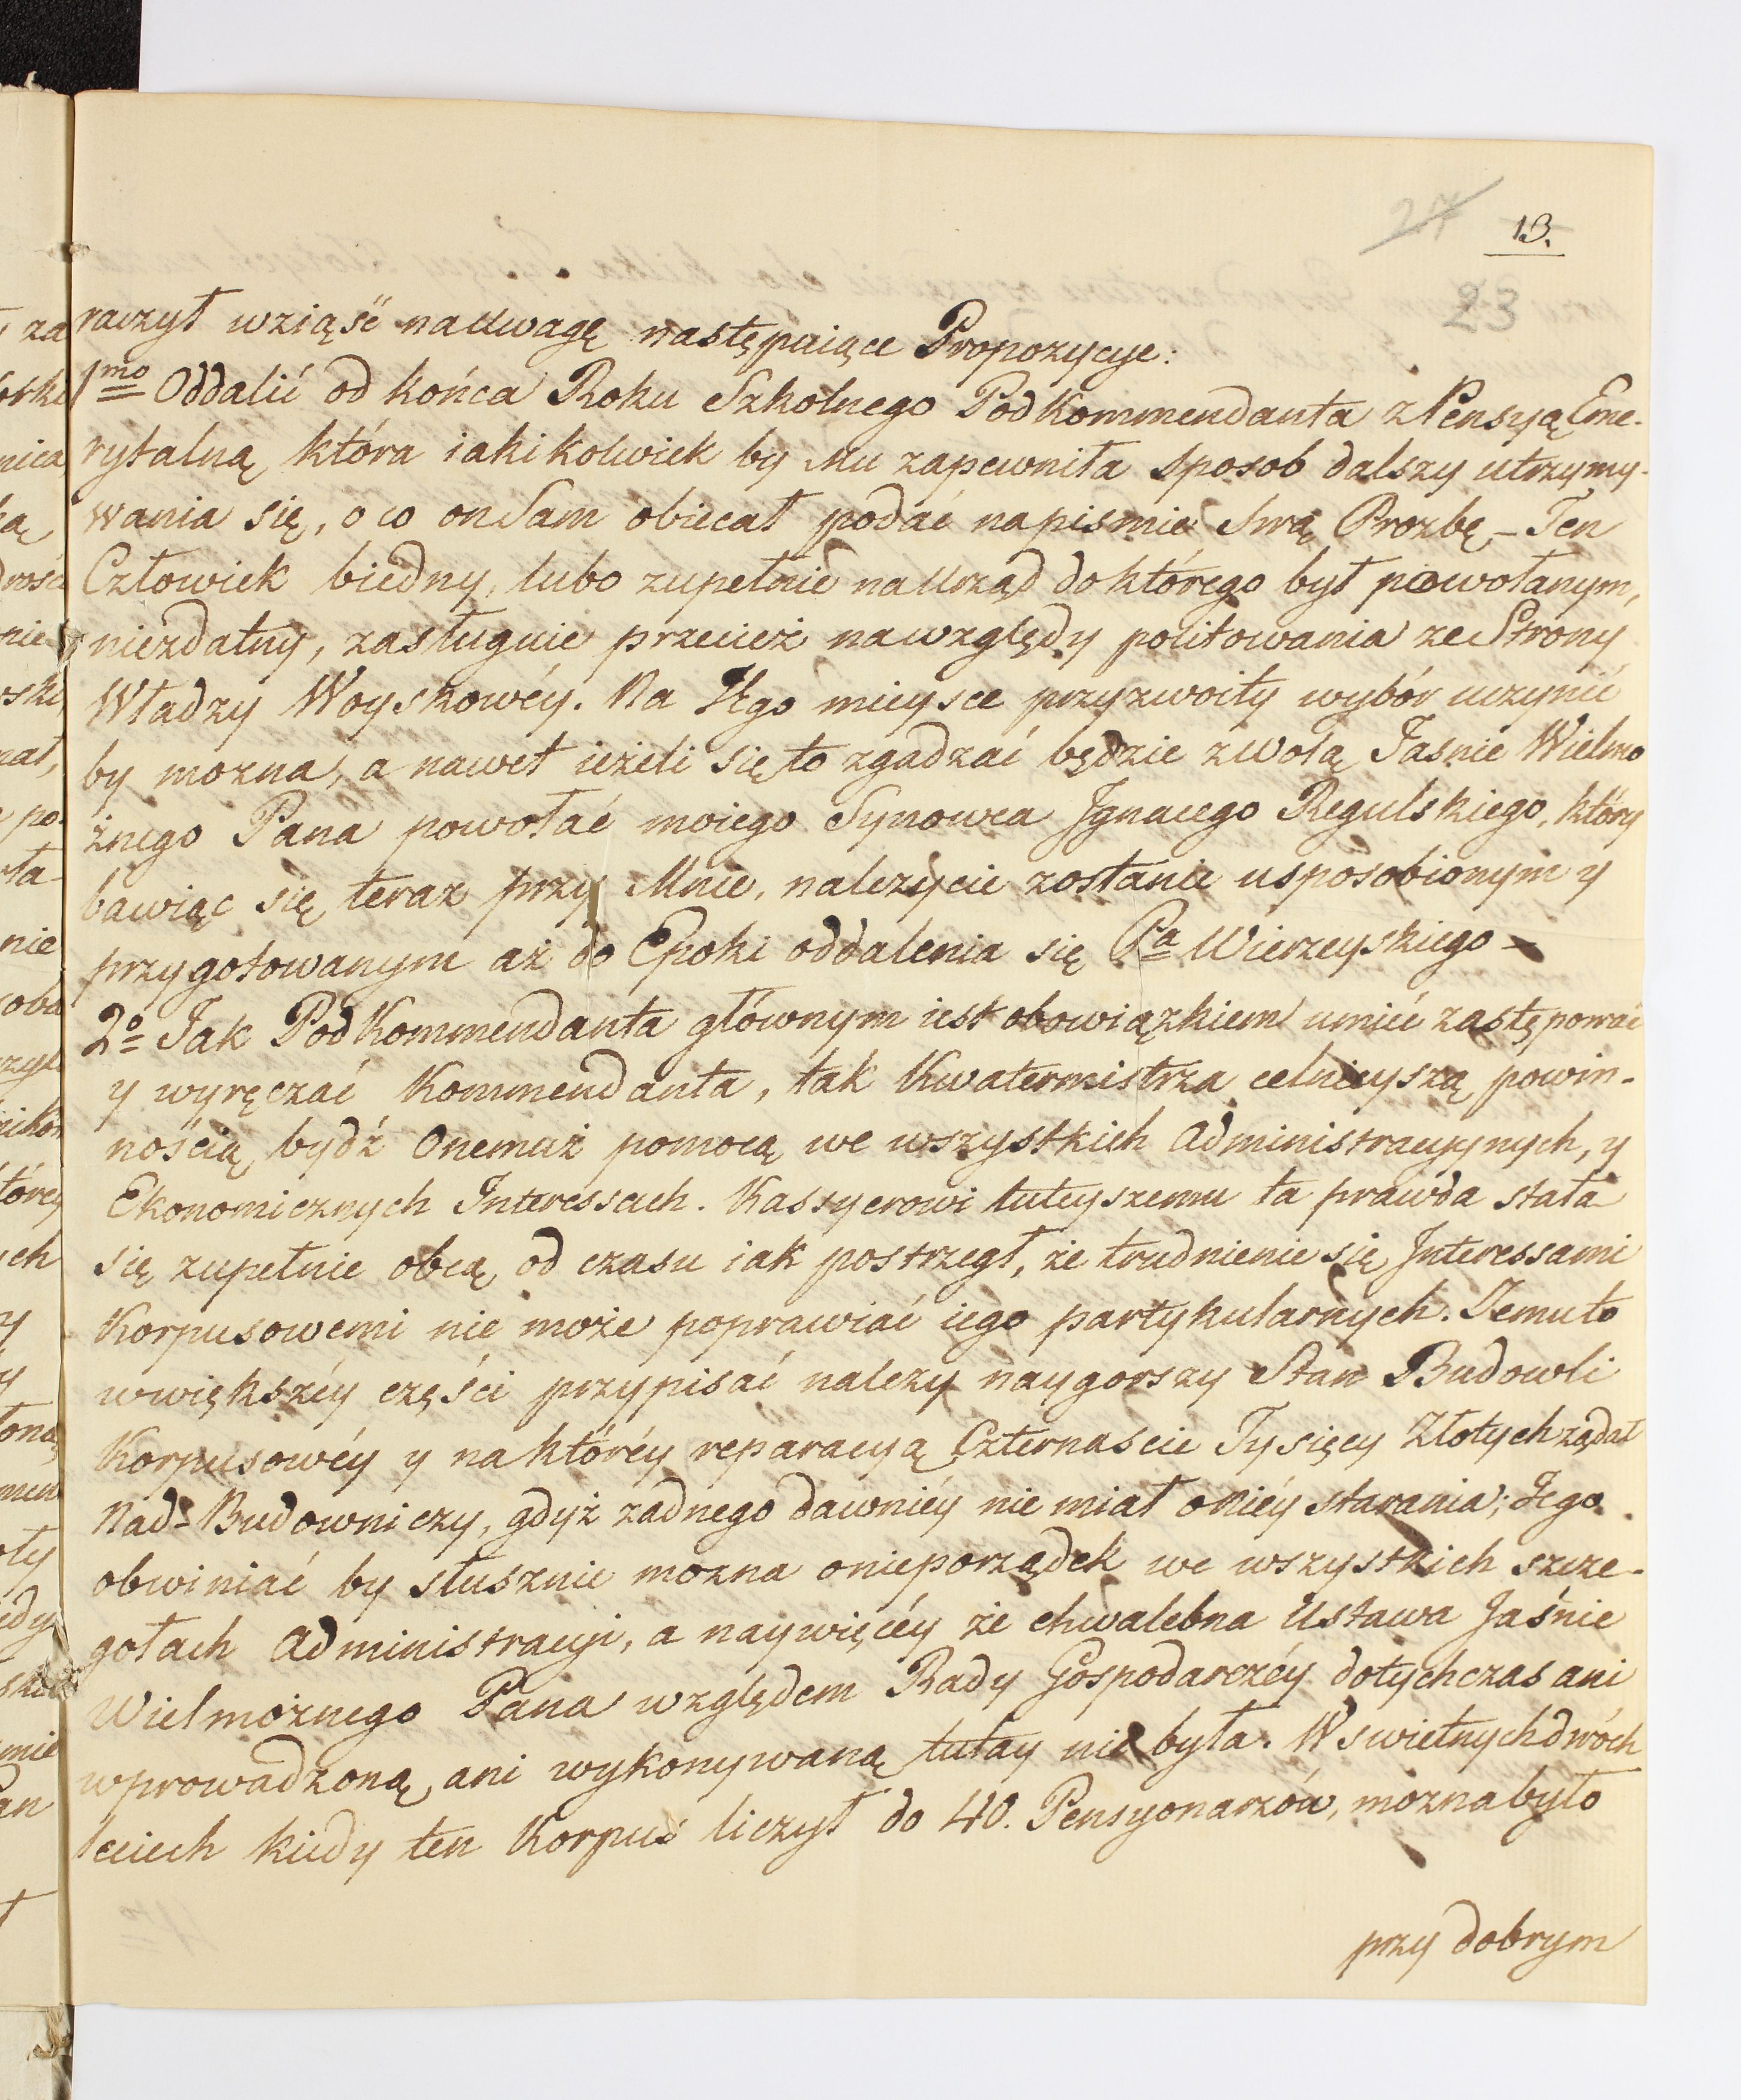 27 13.
23
raczył wziąść na uwagę następuiące Propozycye:
1mo Oddalić od końca Roku Szkolnego PodKommendanta z Pensyą Eme-
rytalną, która iakikolwiek by Mu zapewniła sposob dalszy utrzymy-
wania się, o co on Sam obiecał podać na pismie Swą Prozbę – Ten
Człowiek biedny, lubo zupełnie na Urząd do którego był powołanym,
niezdatny, zasługuie przecież na względy politowania ze Strony
Władzy Woyskowéy. Na Jego mieysce przyzwoity wybór uczynić
by mozna, a nawet ieżeli się to zgadzać będzie z wolą Jasnie Wielmo
żnego Pana powołać moiego Synowca Jgnacego Regulskiego, który
bawiąc się teraz przy Mnie, nalezycie zostanie usposobionym y
przygotowanym aż do Epoki oddalenia się Pa Wierzeyskiego –
2o Jak PodKommendanta głównym iest obowiązkiem umieć zastępować
y wyręczać Kommendanta, tak Kwatermistrza celnieyszą powin-
nością, bydź Onemuż pomocą we wszystkich Administracyynych, y
Ekonomicznych Interessach. Kassyerowi tuteyszemu ta prawda stała
się zupełnie obcą, od czasu iak postrzegł, że trudnienie się Jnteressami
Korpusowemi nie może poprawiać iego partykularnych. Temu to
w większéy części przypisać nalezy naygorszy Stan Budowli
Korpusowéy y na któréy reparacyą Czternascie Tysięcy Złotych żądał
Nad-Budowniczy, gdyż zadnego dawniéy nie miał o niéy starania; Jego
obwiniać by słusznie mozna o nieporządek we wszystkich szcze-
gołach Administracyi, a naywięcéy że chwalebna Ustawa Jaśnie
Wielmożnego Pana względem Rady Gospodarczéy dotychczas ani
wprowadzoną, ani wykonywaną tutay nie była. W swietnych dwóch
leciech kiedy ten Korpus liczył do 40. Pensyonarzów, mozna było
przy dobrym